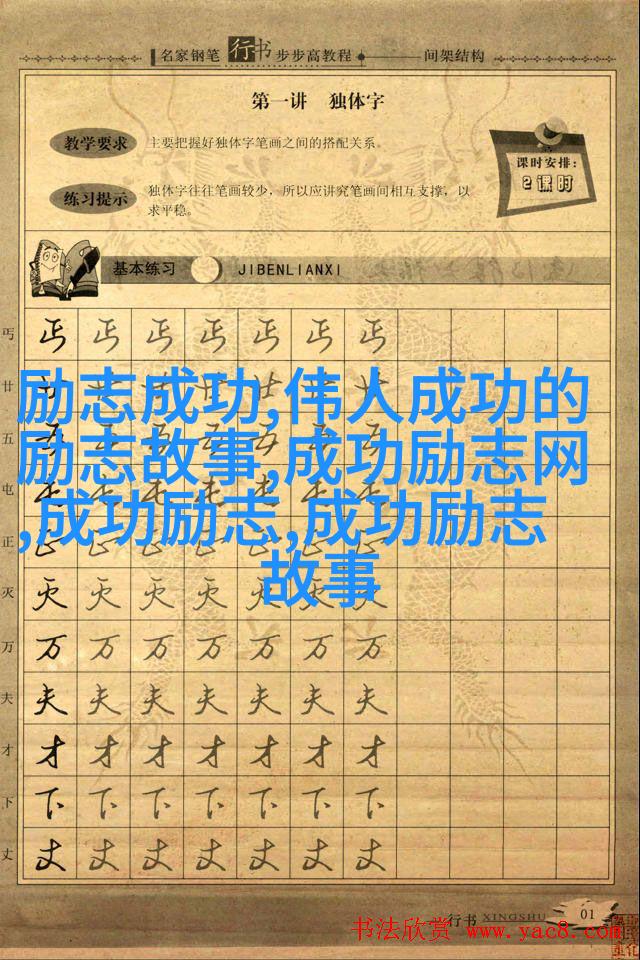 名家钢笔 行书 步步高教程 间架结构
第一讲 独体字
教学要求 主要把握好独体字笔画之间的搭配关系。
练习提示 独体字往往笔画较少，所以应讲究笔画间相互支撑，以
求平稳。
课时安排：
2课时
基本练习 JIBENLIANXI
丐 丐 丐 丐 丐 丐 丐 丐
廿 廿 廿 廿 廿 廿 廿 廿
励志成功,伟人成功的
五 五 五 五 五 五 五 五
励志故事,成功励志网
屯 屯 屯 屯 屯 屯 屯 屯
,成功励志,成功励志
正 正 正 正 正 正 正 正
故事
灭 灭 灭 灭 灭 灭 灭 灭
万 万 万 万 万 万 万 万
夫 夫 夫 夫 夫 夫 夫 夫
才 才 才 才 才 才 才 才
下 下 下 下 下 下 下 下
丈 丈 丈 丈 丈 丈 丈 丈
行书 XINGSHU 01
书法欣赏 www.yac8.com